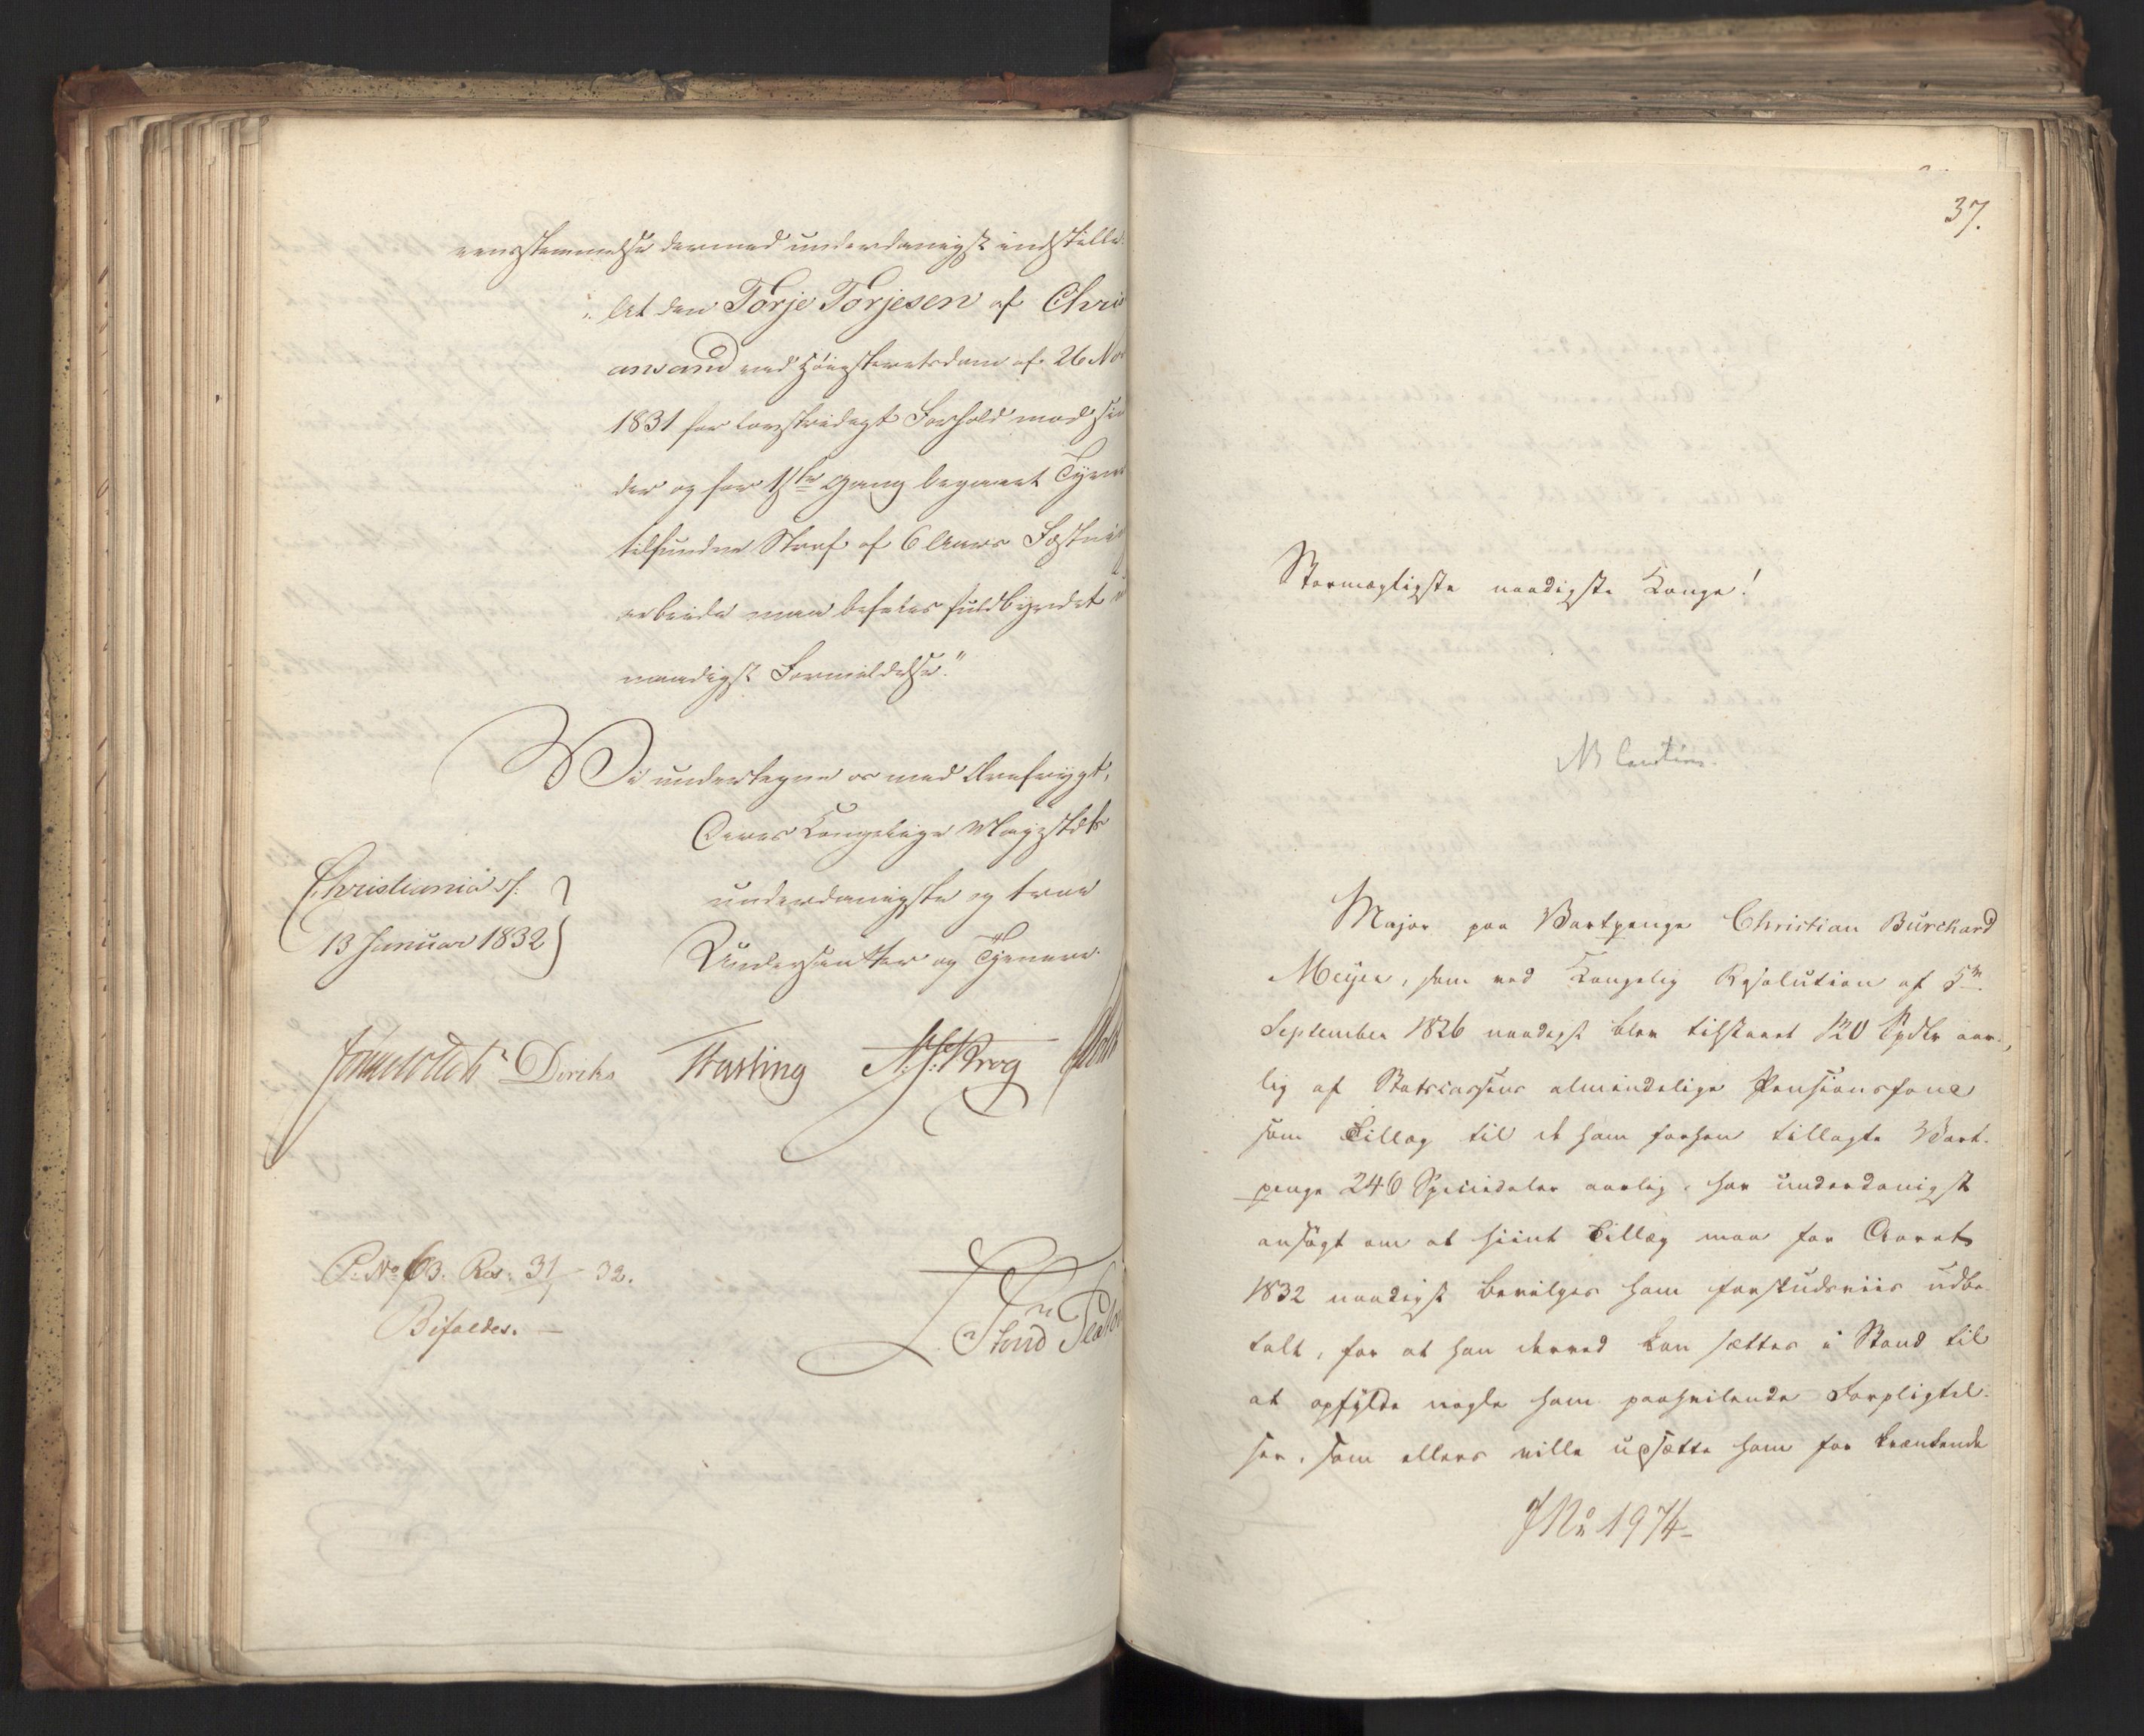 eensstemmelse dermed underdanigst indstille:
"At den Torje Torjesen af Chri
ansand ved Höiesteretsdom af 26 No
1831 for lovstridigt Forhold mod
der og for 1ste Gang begaaet Tyve
tilfundne Straf af 6 Aars Fæstni
arbeide maa befales fuldbyrdet
naadigst Formildelse."
Vi undertegne os med Ærefrygt,
Deres Kongelige Majestæts
Christiania d.
underdanigste og troe
13 Januar 1832
Undersaatter og Tjenere.
Diriks Fasting N. J. Krog
P. No 63. Res. 31/1 - 32.
Bifaldes. -
37.
Stormægtigste naadigste Konge!
Major paa Vartpenge Christian Burchard
Meyer, som ved Kongelig Resolution af 5te
September 1826 naadigst blev tilstaaet 120 Spdlr aar-
lig af Statscassens almindelige Pensionsfond
som Tillæg til de ham forhen tillagte Vart-
penge 246 Speciedaler aarlig, har underdanigst
ansögt om at hiint Tillæg maa for Aaret
1832 naadigst bevilges ham forskudsviis udbe-
talt, for at han derved kan sættes i Stand til
at opfylde nogle ham paahvilende Forpligtel-
ser, som ellers ville udsætte ham for krænkende
J No 1974-